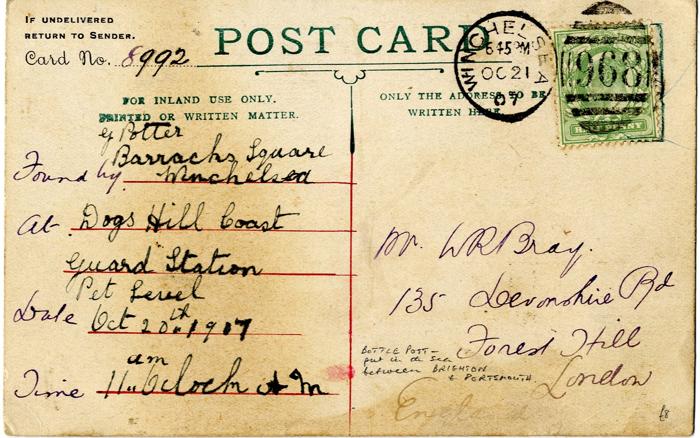 IF UNDELIVERED
RETURN TO SENDER.
Card No. 8992
POST CARD
FOR INLAND USE ONLY.
PRINTED OR WRITTEN MATTER.
G Potter
Barracks Square
Found by Winchelsea
At Dogs Hill Coast
Guard Station
Pet Level
Date Oct 20th 1907
am
Time 11. O'Clock A M
ONLY THE ADDRESS TO BE
WRITTEN HERE.
WINCHELSEA
6.45 PM
OC 21
07
968
HALFPENNY
Mr. W R Bray.
135 Devonshire Rd
Forest Hill
London
England
BOTTLE POST —
put in the Sea
between BRIGHTON
& PORTSMOUTH
£8